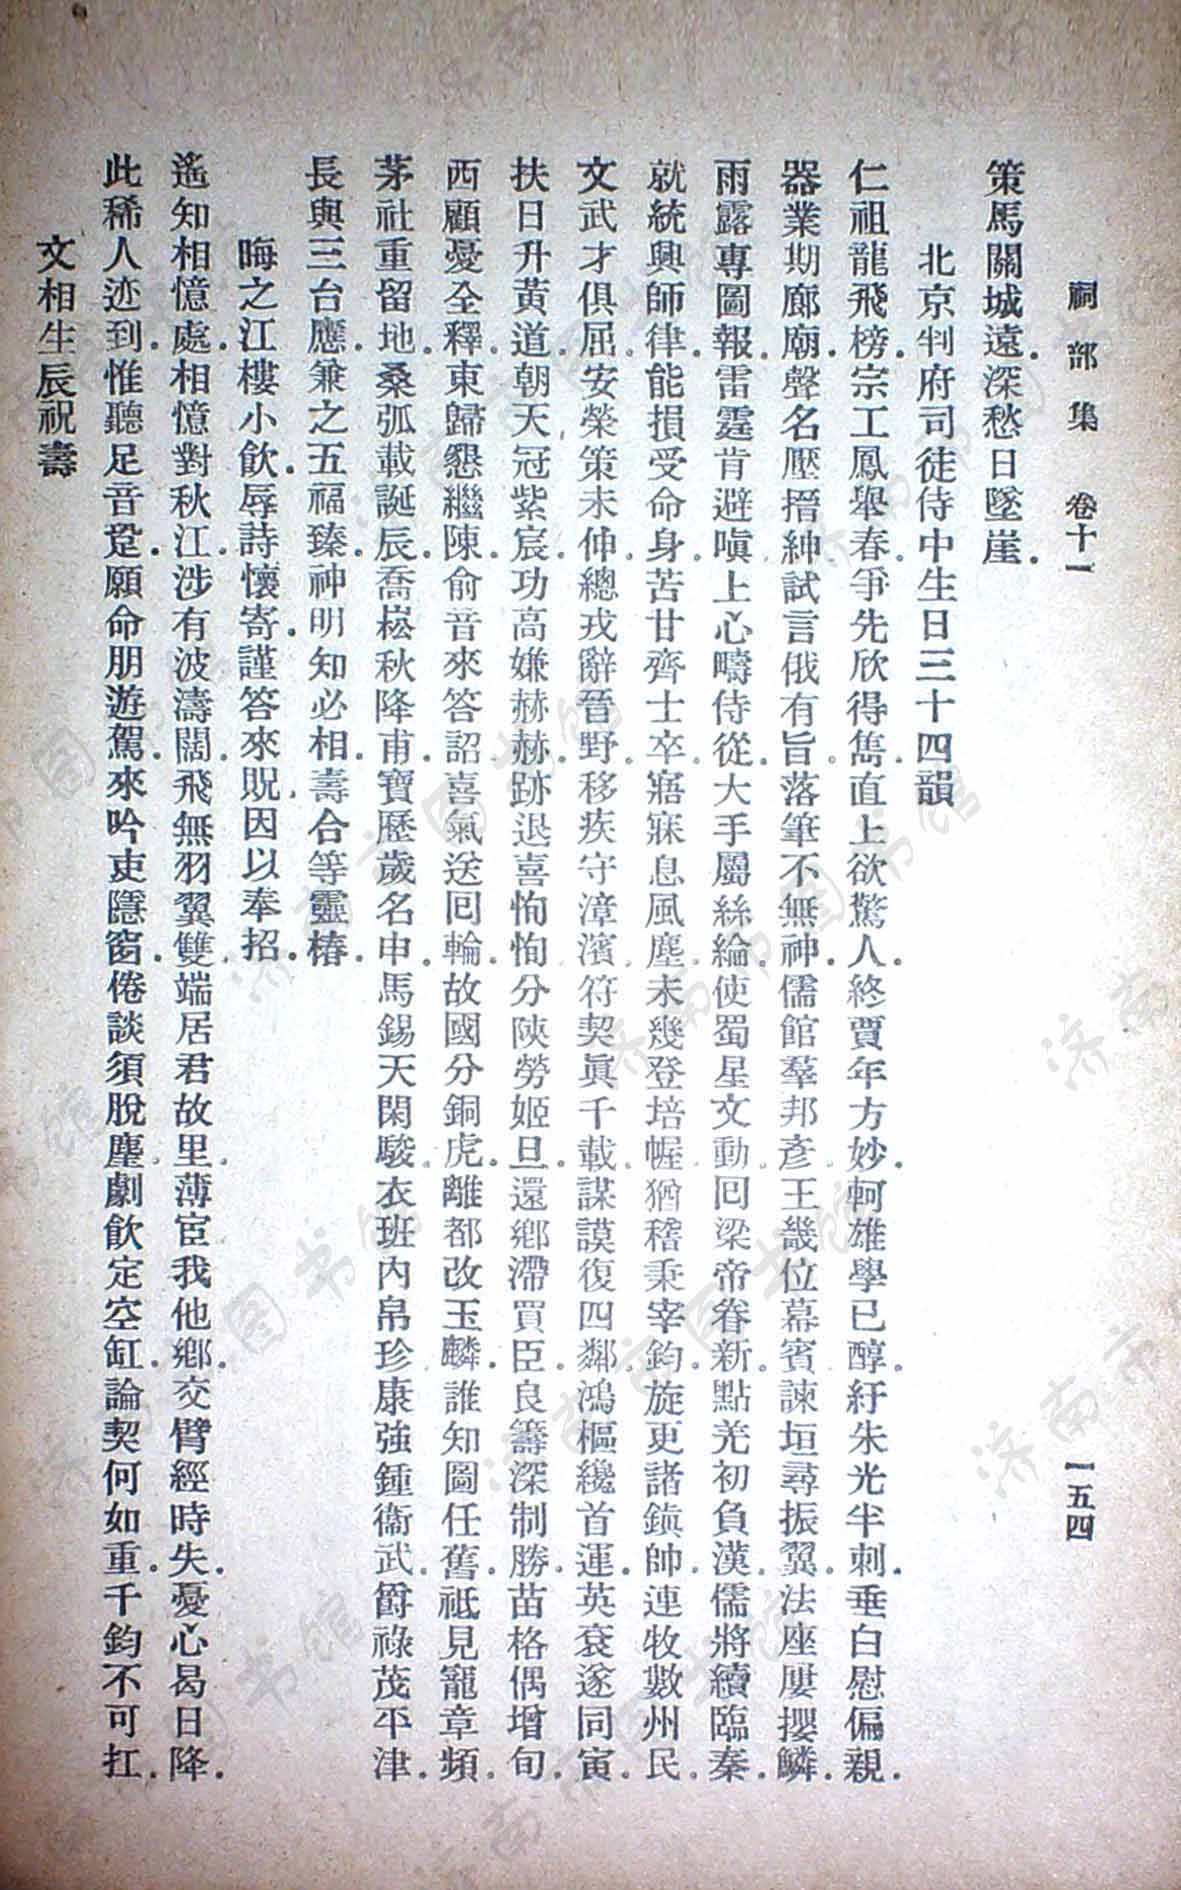 祠部集　卷十一　一五四
策馬關城遠。深愁日墜崖。
北京判府司徒侍中生日三十四韻
仁祖龍飛榜。宗工鳳舉春。爭先欣得雋。直上欲驚人。終賈年方妙。軻雄學已醇。紆朱光半刺。垂白慰偏親。
器業期廊廟。聲名壓搢紳。試言俄有旨。落筆不無神。儒館羣邦彥。王畿位幕賓。諫垣尋振翼。法座屢攖鱗。
雨露專圖報。雷霆肯避嗔。上心疇侍從。大手屬絲綸。使蜀星文動。回梁帝眷新。點羌初負漢。儒將續臨秦。
就統興師律。能損受命身。苦甘齊士卒。寤寐息風塵。未幾登培幄。猶稽秉宰鈞。旋更諸鎮帥。連牧數州民。
文武才俱屈。安榮策未伸。總戎辭晉野。移疾守漳濱。符契眞千載。謀謨復四鄰。鴻樞纔首運。英袞遂同寅。
扶日升黃道。朝天冠紫宸。功高嫌赫赫。跡退喜恂恂。分陝勞姬旦。還鄉滯買臣。良籌深制勝。苗格偶增旬。
西顧憂全釋。東歸懇繼陳。俞音來答詔。喜氣送回輪。故國分銅虎。離都改玉麟。誰知圖任舊。祗見寵章頻。
茅社重留地。桑弧載誕辰。喬崧秋降甫。寶歷歲名申。馬錫天閑駿。衣班內帛珍。康強鍾衞武。爵祿茂平津。
長與三台應。兼之五福臻。神明知必相。壽合等靈椿。
晦之江樓小飲。辱詩懷寄。謹答來貺。因以奉招。
遙知相憶處。相憶對秋江。涉有波濤闊。飛無羽翼雙。端居君故里。薄宦我他鄉。交臂經時失。憂心曷日降。
此稀人迹到。惟聽足音跫。願命朋遊駕。來吟吏隱窗。倦談須脫麈。劇飲定空缸。論契何如重。千鈞不可扛。
文相生辰祝壽